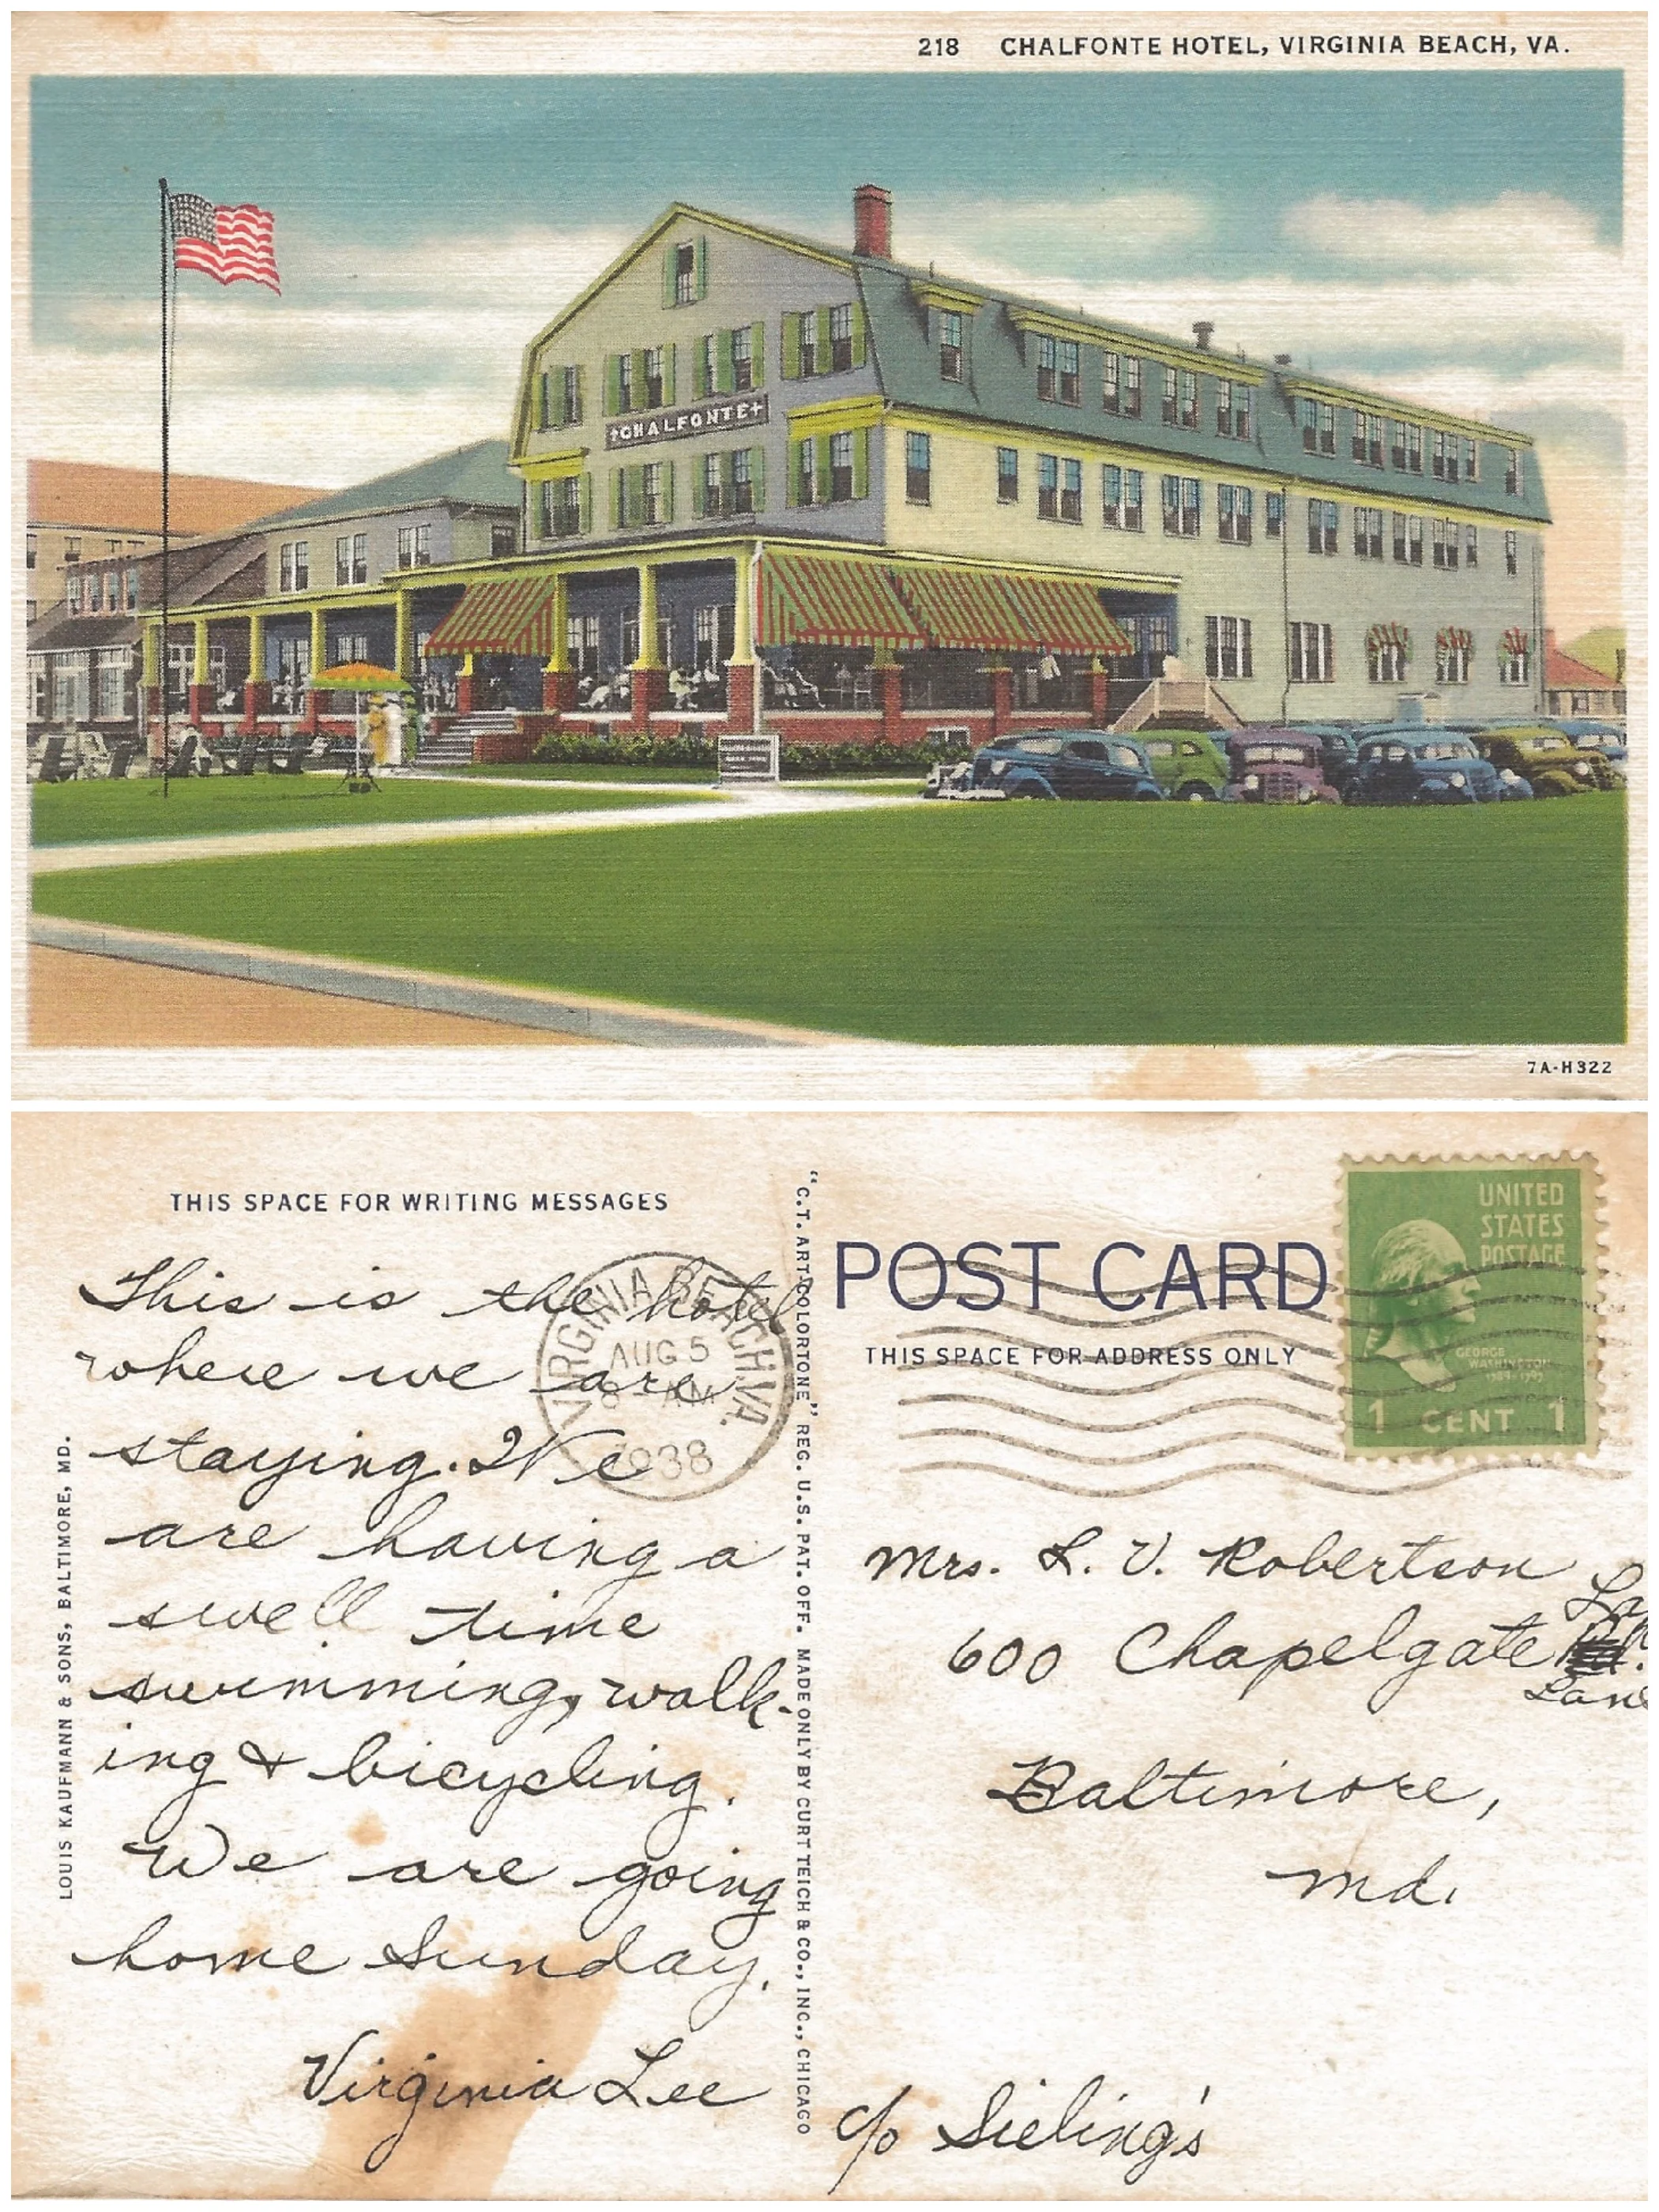 218 CHALFONTE HOTEL, VIRGINIA BEACH, VA.
CHALFONTE
7A-H322
THIS SPACE FOR WRITING MESSAGES
This is the hotel
where we are
staying. We
are having a
swell time
swimming, walk-
ing & bicycling.
We are going
home Sunday.
Virginia Lee
VIRGINIA BEACH, VA.
AUG 5
8 - AM
1938
LOUIS KAUFMANN & SONS, BALTIMORE, MD.
"C.T. ART-COLORTONE" REG. U.S. PAT. OFF. MADE ONLY BY CURT TEICH & CO., INC., CHICAGO
POST CARD
THIS SPACE FOR ADDRESS ONLY
UNITED
STATES
POSTAGE
GEORGE
WASHINGTON
1789-1797
1 CENT 1
Mrs. L. V. Robertson
600 Chapelgate
Lane
Baltimore,
Md.
c/o Sieling's